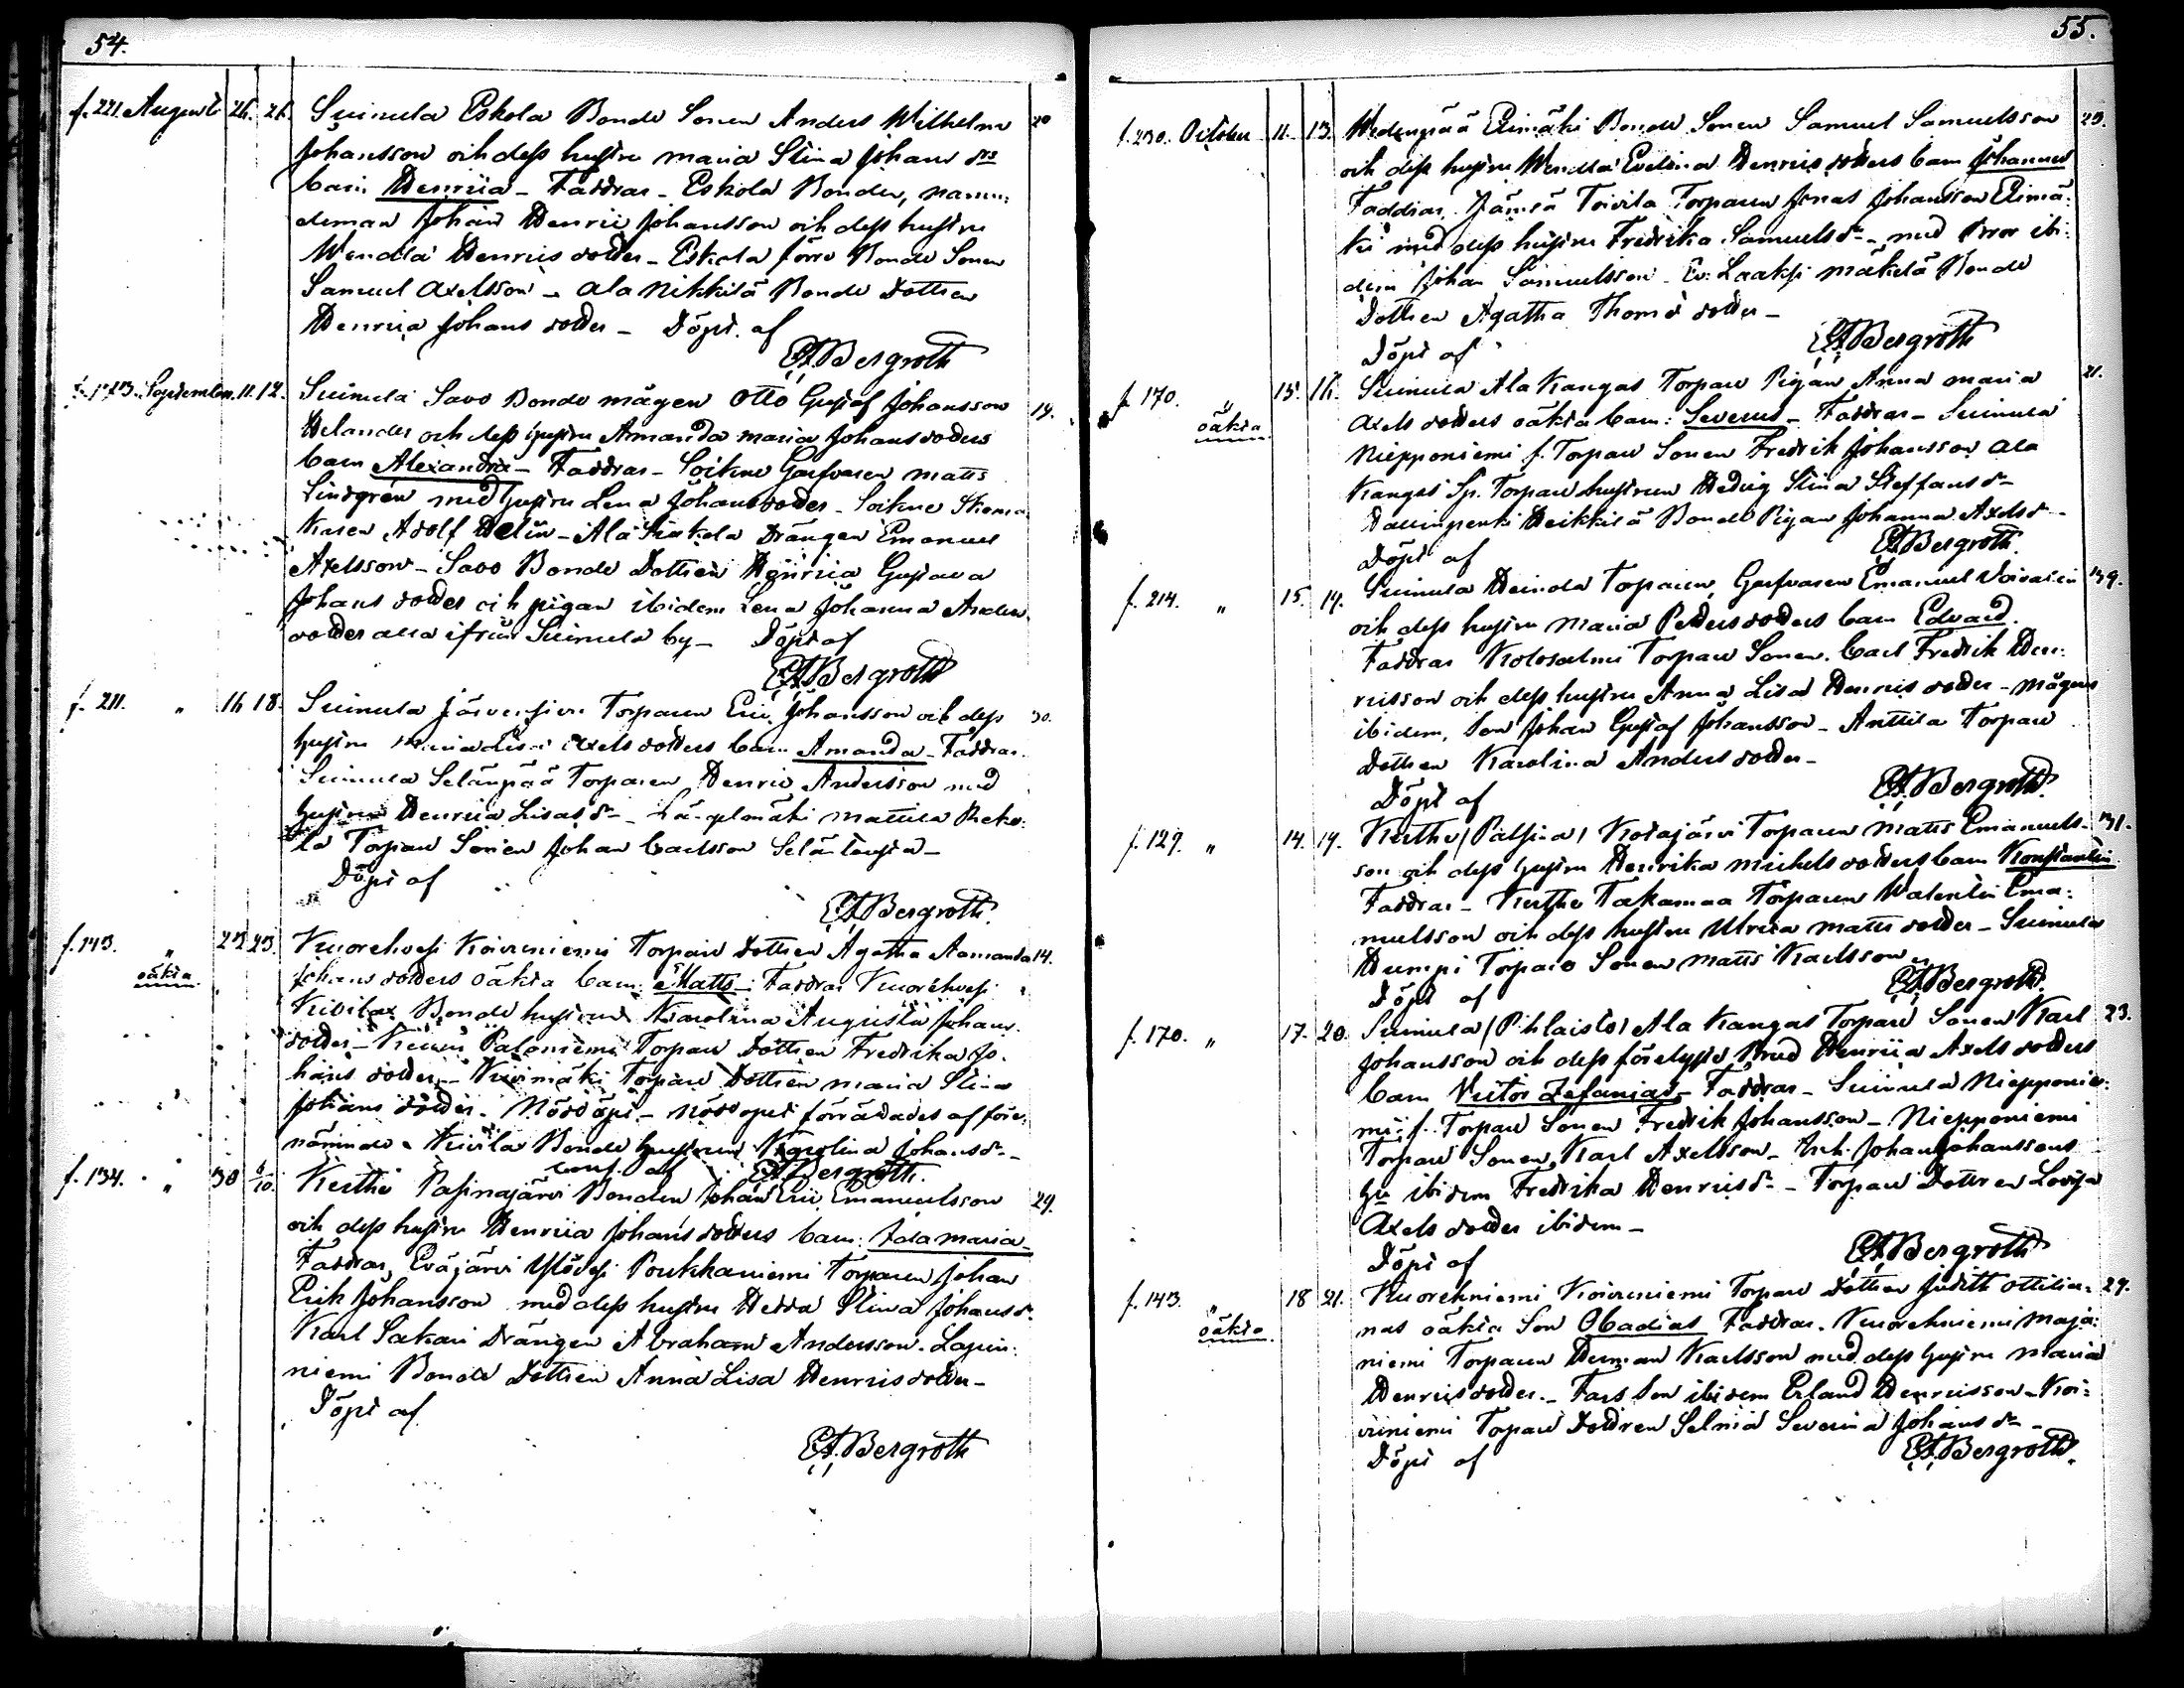 54.
f. 221. Augusti 26. 26. Suinula Eskola Bonde Sonen Anders Wilhelm 20
Johansson och dess hustru Maria Stina Johans drs
barn Henrica - Faddrar - Eskola Bonden, nämn:
deman Johan Henric Johansson och dess hustru
Wendla Henrics dotter - Eskola förre Bonde Sonen
Samuel Axelsson - Ala Nikkilä Bonde Dottren
Henrica Johans dotter - Döpt af
EA Bergroth
September 11. 12. Suinula Savo Bonde mågen Otto Gustaf Johansson 19.
Helander och dess hustru Amanda Maria Johans dotters
barn Alexandra - Faddrar - Soikne Garfvaren Matts
Lindgren med hustru Lena Johans dotter - Soikne Skoma
karen Adolf Helin - Ala Drängen Emanuel
Axelsson - Savo Bonde Dottren Henrica Gustava
Johans dotter och pigan ibidem Lena Johanna Anders
dotter alla ifrån Suinula by - Döpt af
EA Bergroth
f. 211. " 16 18. Suinula Järvensivu Torparen Eric Johansson och dess 30.
hustru Maria Lisa Axels dotters barn Amanda - Faddrar
Suinula Selänpää Torparen Henric Andersson med
hustru Henrica Lisas dr - Längelmäki Mattila Reko:
la Torpare Sonen Johan Carlsson
Döpt af
EA Bergroth.
f. 143. " 23 23. Kuorehvesi Koivuniemi Torpare Dottren Agatha Amanda 14.
oäkta Johans dotters oäkta barn Matts - Faddrar Kuorehvesi
Bonde hustrun Karolina Augusta Johans
dotter - Paloniemi Torpare Dottren Fredrika Jo-
hans dotter - Torpare Dottren Maria Stina
Johans dotter - Nöddöpt - Nöddopet förrättades af före:
nämnde Bonde hustrun Karolina Johans dr -
conf. af EA Bergroth.
f. 134. " 30 6/10. Kerthe Pasinajärvi Bonden Johan Eric Emanuelsson 29.
och dess hustru Henrica Johans dotters barn: Ida Maria -
Faddrar, Eväjärvi Ylövesi Poukkaniemi Torparen Johan
Erik Johansson med dess hustru Hedda Stina Johans dr
Karl Sakari Drängen Abraham Andersson - Lapin:
niemi Bonde Dottren Anna Lisa Henrics dotter -
Döpt af
EA Bergroth
55.
f. 230. October 11. 13. Wedenpää Elimäki Bonde Sonen Samuel Samuelsson 23.
och dess hustru Wendla Evelina Henrics dotters barn Johannes
Faddrar, Jämsä Toivila Torparen Jonas Johansson Elimä:
ki med dess hustru Fredrika Samuels dr - med Bror ibi:
dem Johan Samuelsson - Ev: Laaksi Mäkelä Bonde
Dottren Agatha Thomé dotter -
EA Bergroth
Döpt af
f. 170. " 15. 16. Suinula Ala Kangas Torpare Pigan Anna Maria 21.
oäkta Axels dotters oäkta barn: Severus - Faddrar - Suinula
Niepponiemi f. Torpare Sonen Fredrik Johansson Ala
Kangas Sp. Torpare hustrun Hedvig Stina Steffans dr
Heikkilä Bonde Pigan Johanna Axels dr -
EA Bergroth.
Döpt af
f. 214. " 15. 19. Suinula Heinola Torparen, Garfvaren Emanuel 39.
och dess hustru Maria Petters dotters barn Edvard.
Faddrar Kolosalmi Torpare Sonen Carl Fredrik Hen:
ricsson och dess hustru Anna Lisa Henrics dotter - mågens
ibidem, Son Johan Gustaf Johansson - Anttila Torpare
Dottren Karolina Anders dotter -
EA Bergroth.
Döpt af
f. 129. " 14. 19. Kerthe (Passina) Kotajärvi Torparen Matts Emanuels- 31.
son och dess hustru Henrika Michels dotters barn Konstantin
Faddrar - Kerthe Takamaa Torparen Walentin Ema:
nuelsson och dess hustru Ulrica Matts dotter - Suinula
Humpi Torpare Sonen Matts Karlsson
EA Bergroth.
Döpt af
f. 170. " 17. 20. Suinula (Pihlaisto) Ala Kangas Torpare Sonen Karl 23.
Johansson och dess förelyste Brud Henrica Axels dotters
barn Victor Zefanias - Faddrar - Suinula Niepponie:
mi f. Torpare Sonen Fredrik Johansson - Niepponiemi
Torpare Sonen Karl Axelsson - Inh. Johan Johanssons
hu ibidem Fredrika Henrics dr - Torpare Dottren Lovisa
Axels dotter ibidem -
EA Bergroth
Döpt af
f. 143. " 18 21. Kuorehniemi Koivuniemi Torpare Dottren Judith Ottilia- 29.
oäkta nas oäkta Son Obadias Faddrar. Kuorehniemi Maja:
niemi Torparen Herman Karlsson med dess hustru Maria
Henrics dotter - Fars Son ibidem Erland Henricsson - Koi:
vuniemi Torpare Dottren Selma Severina Johans dr -
EA Bergroth.
Döpt af